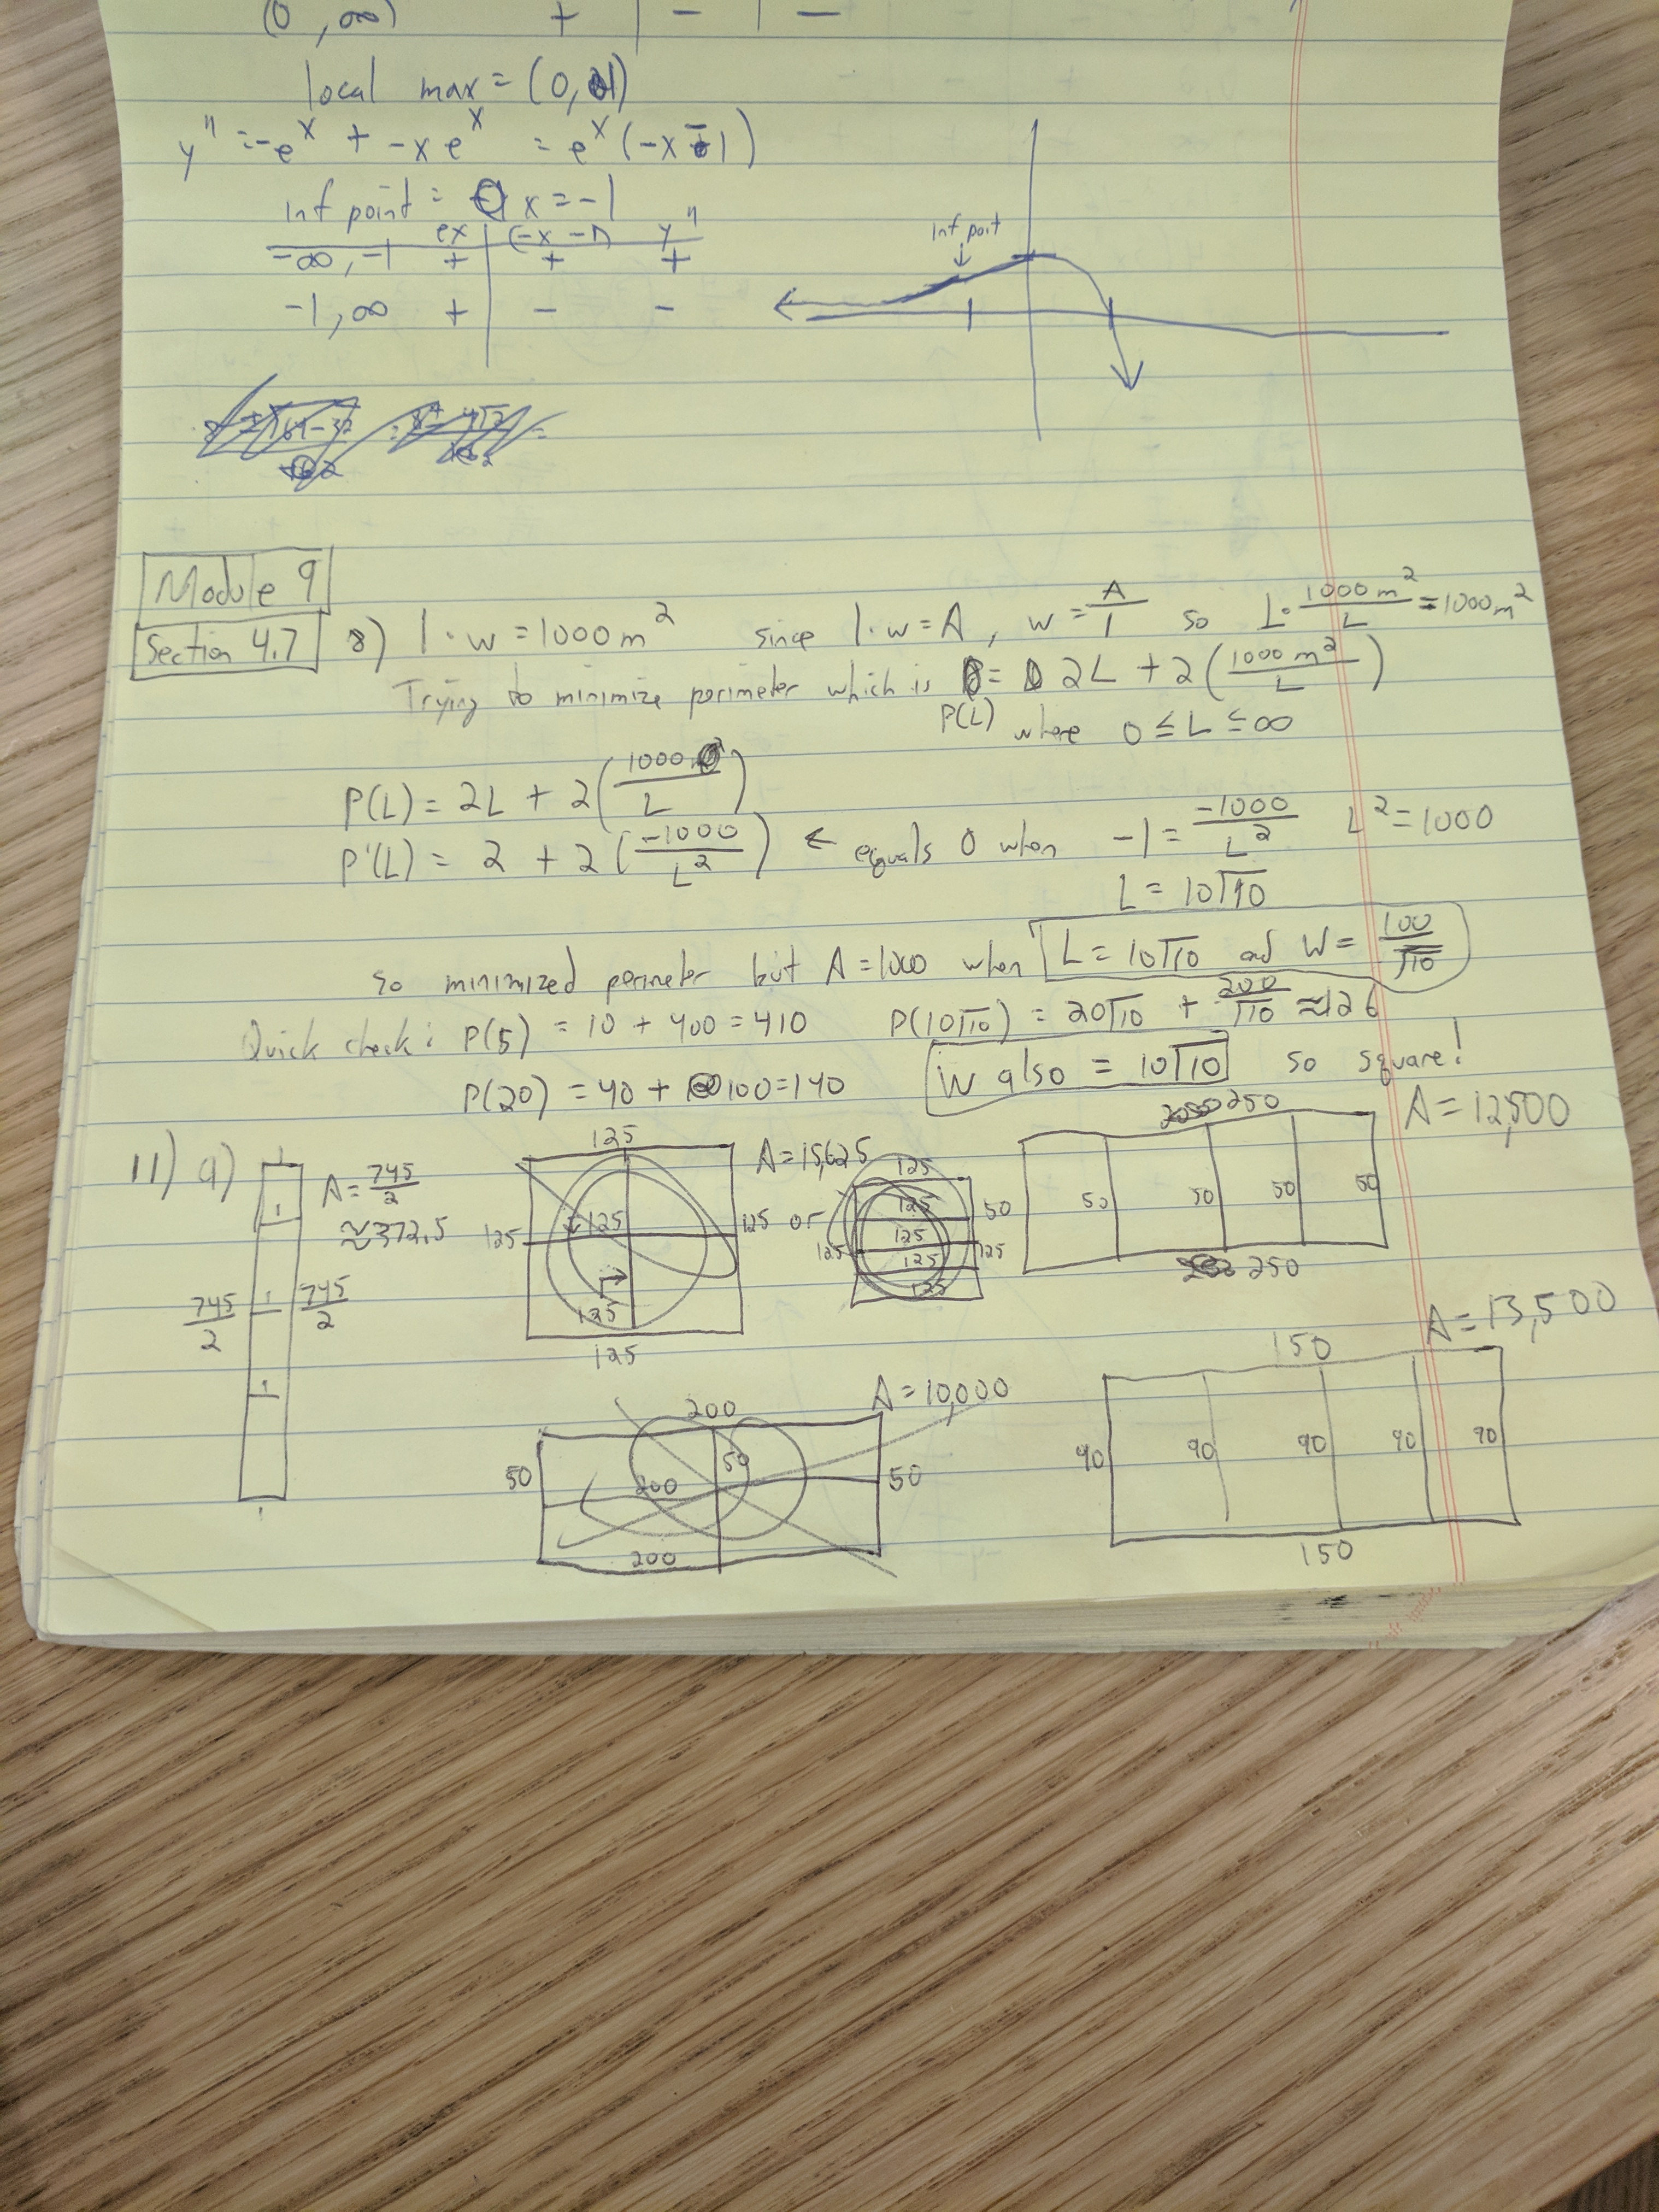 (0, ∞) + | - | -
local max = (0, 1)
y" = -e^x + -xe^x = e^x(-x-1)
inf point = x = -1
e^x | (-x-1) y"
-∞, -1 + | + +
-1, ∞ + | - -
inf poit
Module 9
Section 4.7 8) l · w = 1000 m² since l · w = A, w = A/l so L · 1000 m²/L = 1000 m²
Trying to minimize perimeter which is P(L) = 2L + 2(1000 m²/L)
where 0 ≤ L ≤ ∞
P(L) = 2L + 2(1000/L)
P'(L) = 2 + 2(-1000/L²) ← equals 0 when -1 = -1000/L² L² = 1000
L = 10√10
so minimized perimeter but A = 1000 when L = 10√10 and W = 100/√10
Quick check: P(5) = 10 + 400 = 410 P(10√10) = 20√10 + 200/√10 ≈ 126
P(20) = 40 + 100 = 140 W also = 10√10 so square!
11) a) 1 1 1 1 1 745/2 745/2 A = 745/2 ≈ 372.5
125 125 125 125 125 125 A = 15,625
or
125 125 125 125 125 50 125 125
250 50 50 50 50 250 A = 12,500
200 50 50 200 50 200 A = 10,000
150 90 90 90 90 90 150 A = 13,500